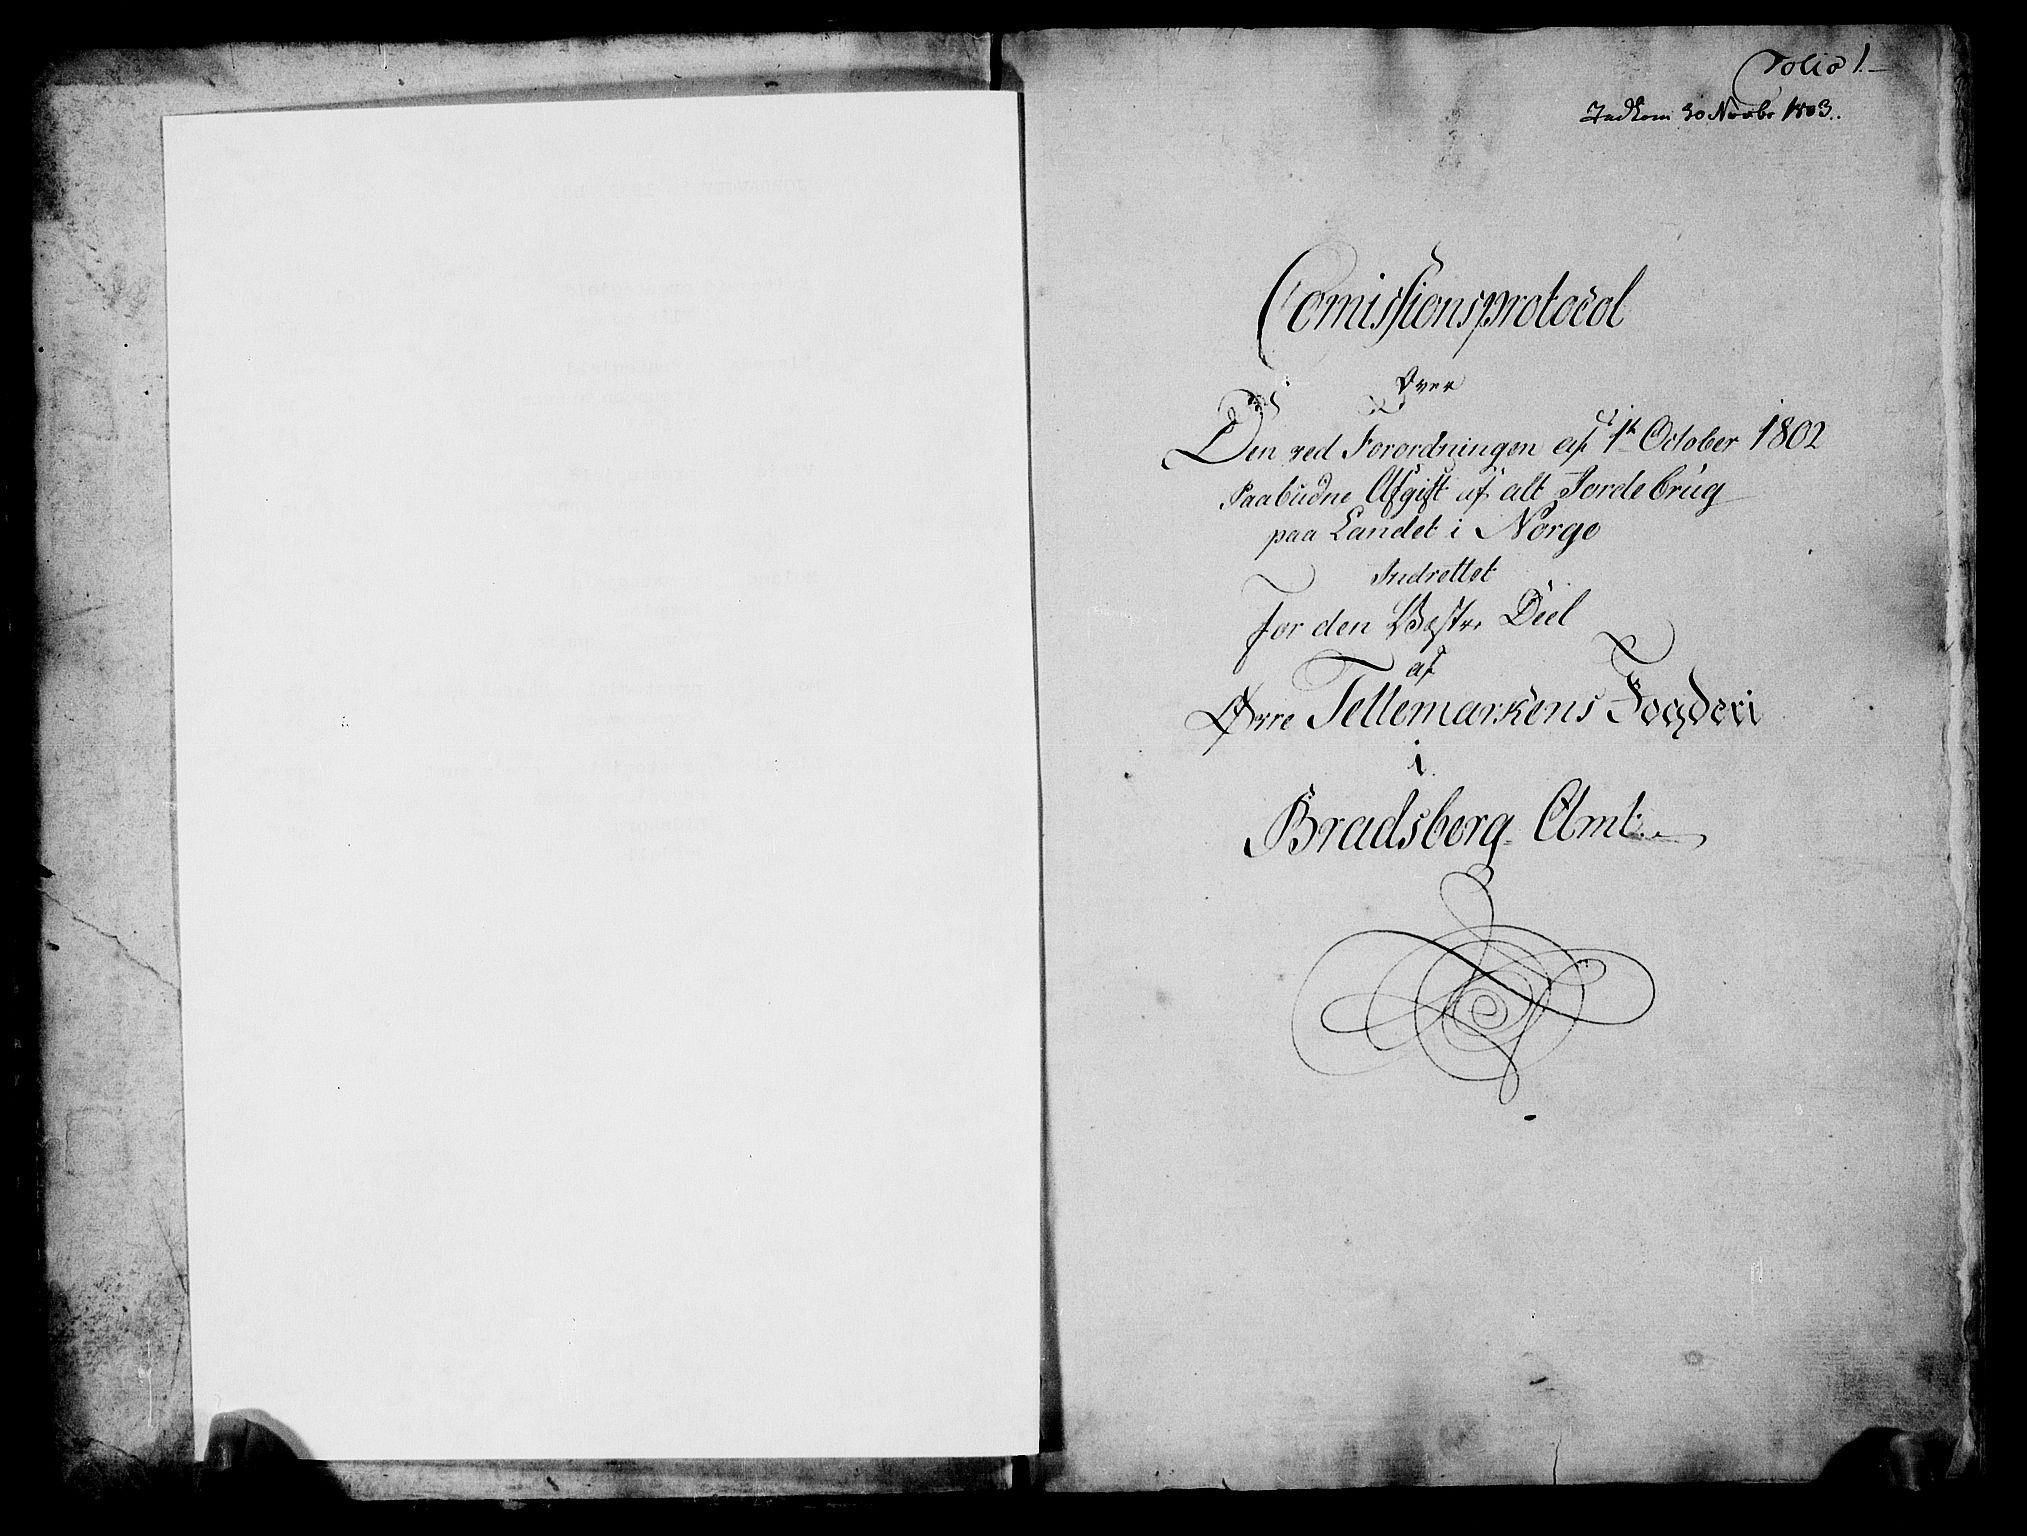 Folio 1.
Indkom 30 Novbr 1803.
Comissionsprotocol
Over
Den ved Forordningen af 1te October 1802
Paabudne Afgift af alt Jordebrug
paa Landet i Norge
Indrettet
for den Vestre Deel
af
Øvre Tellemarkens Fogderi
i
Bradsberg Amt.